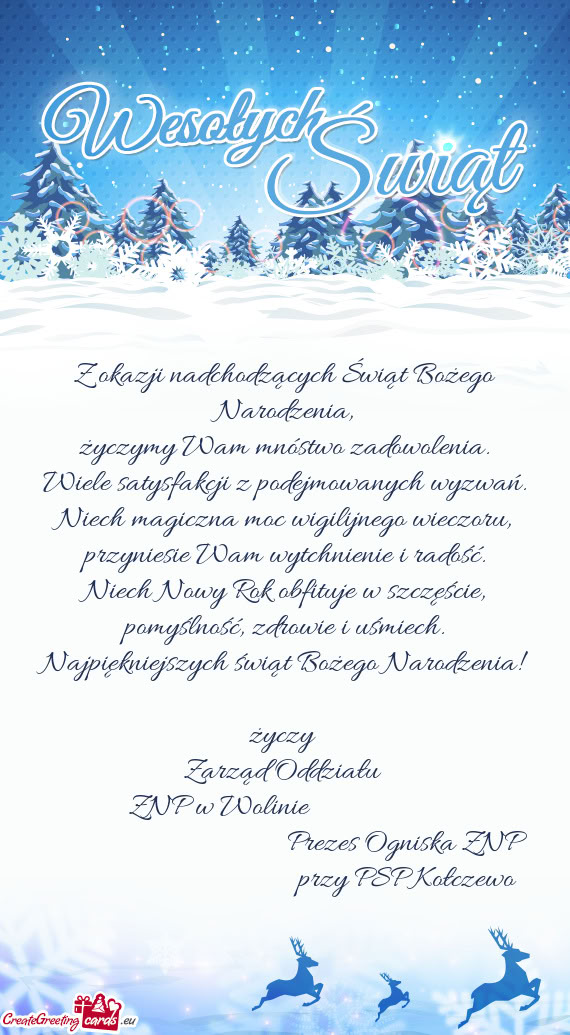 Wesołych
Świąt
Z okazji nadchodzących Świąt Bożego
Narodzenia,
życzymy Wam mnóstwo zadowolenia.
Wiele satysfakcji z podejmowanych wyzwań.
Niech magiczna moc wigilijnego wieczoru,
przyniesie Wam wytchnienie i radość.
Niech Nowy Rok obfituje w szczęście,
pomyślność, zdrowie i uśmiech.
Najpiękniejszych świąt Bożego Narodzenia!
życzy
Zarząd Oddziału
ZNP w Wolinie
Prezes Ogniska ZNP
przy PSP Kołczewo
CreateGreeting cards .eu